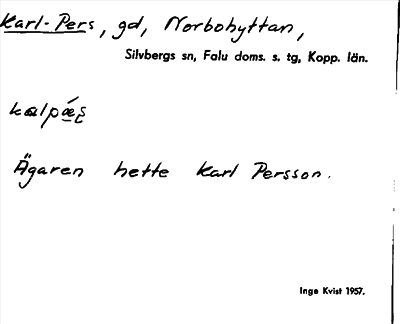 Karl-Pers, gd, Norbohyttan,
Silvbergs sn, Falu doms. s. tg, Kopp. län.
Ägaren hette Karl Persson.
Inga Kvist 1957.